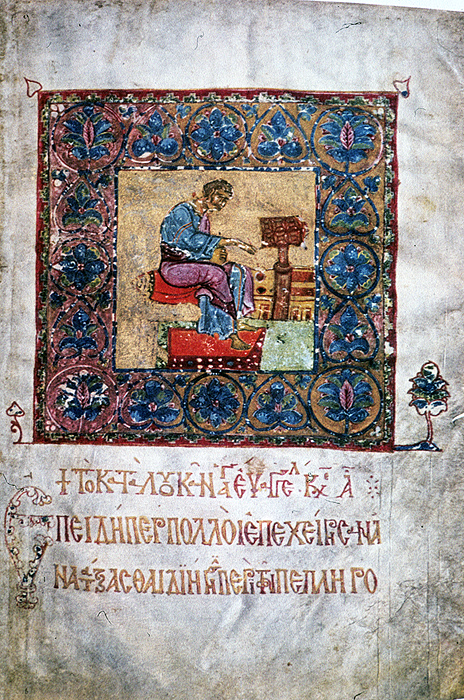 ΤΟ ΚΑΤΑ ΛΟΥΚΑΝ ΑΓ ΕΥΑΓΓΕΛ
ΕΠΕΙΔΗΠΕΡ ΠΟΛΛΟΙ ΕΠΕΧΕΙΡΗΣΑΝ Α
ΝΑΤΑΞΑΣΘΑΙ ΔΙΗΓ ΠΕΡΙ ΤΩ ΠΕΠΛΗΡΟ